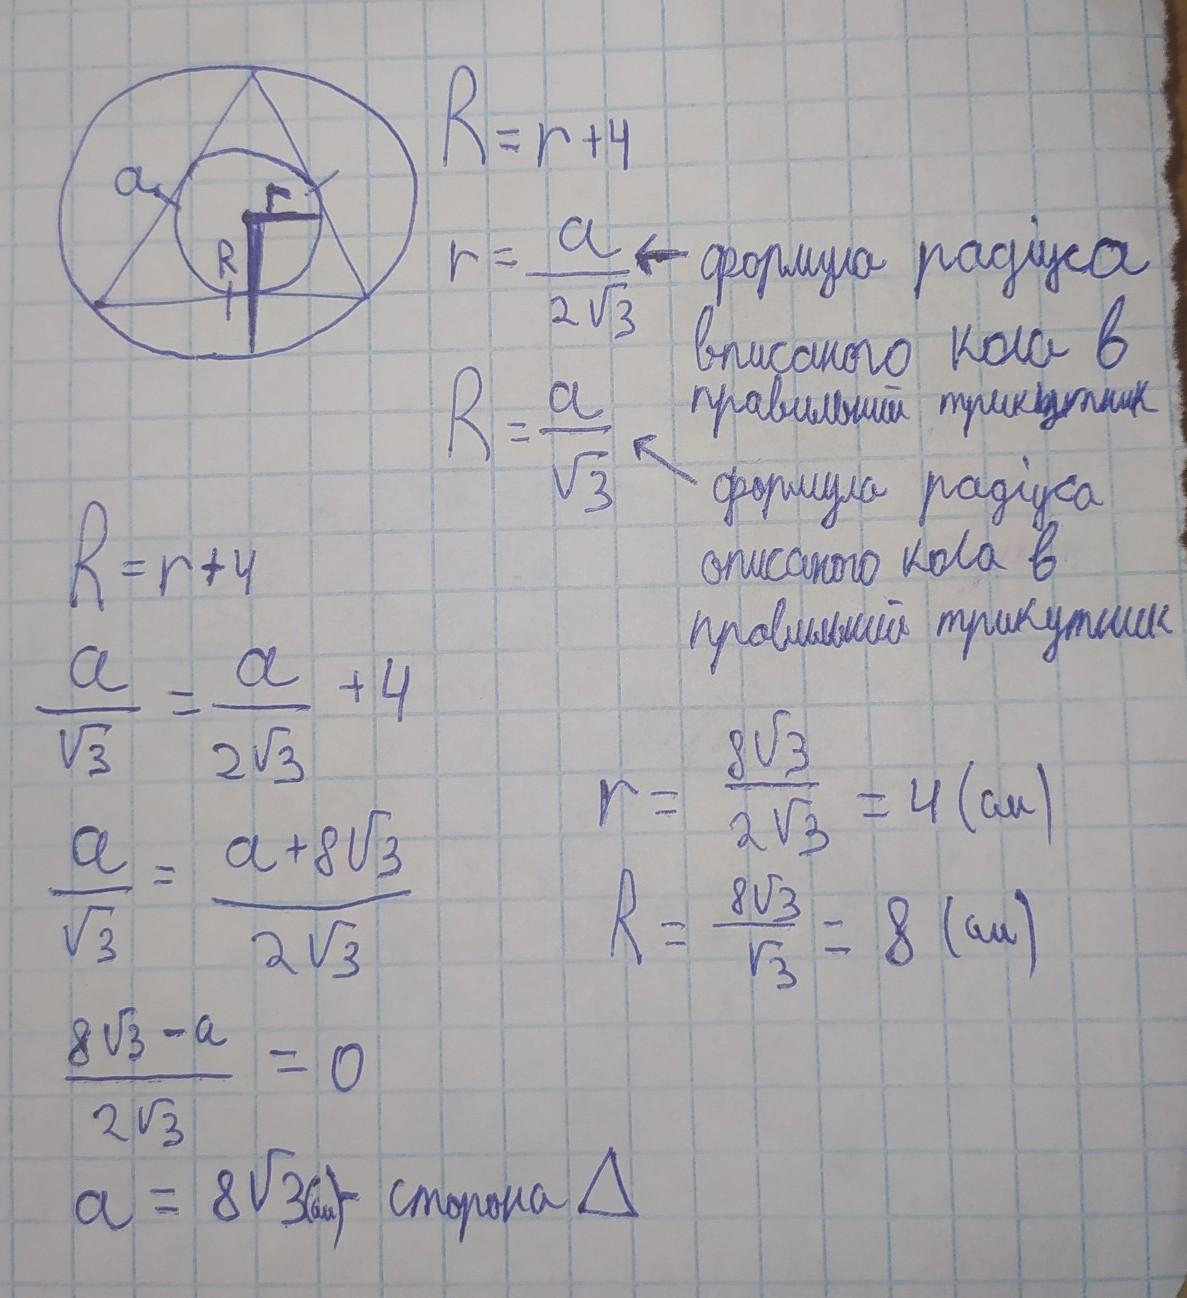 a
r
R
R = r + 4
r = a / 2√3 ← формула радіуса
вписаного кола в
правильний трикутник
R = a / √3
формула радіуса
описаного кола в
правильний трикутник
R = r + 4
a / √3 = a / 2√3 + 4
a / √3 = a + 8√3 / 2√3
8√3 - a / 2√3 = 0
a = 8√3 (см) - сторона Δ
r = 8√3 / 2√3 = 4 (см)
R = 8√3 / √3 = 8 (см)